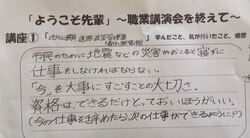 「ようこそ先輩」～職業講演会を終えて～
講座① 学んだこと、気が付いたこと、感想
市民のために地震などの災害がおこると寝ずに
仕事をしなければならない。
「今」を大事にすごすことの大切さ。
資格は、できるだけとっておいほうがいい。
(今の仕事を辞めたら次の仕事ができるように)